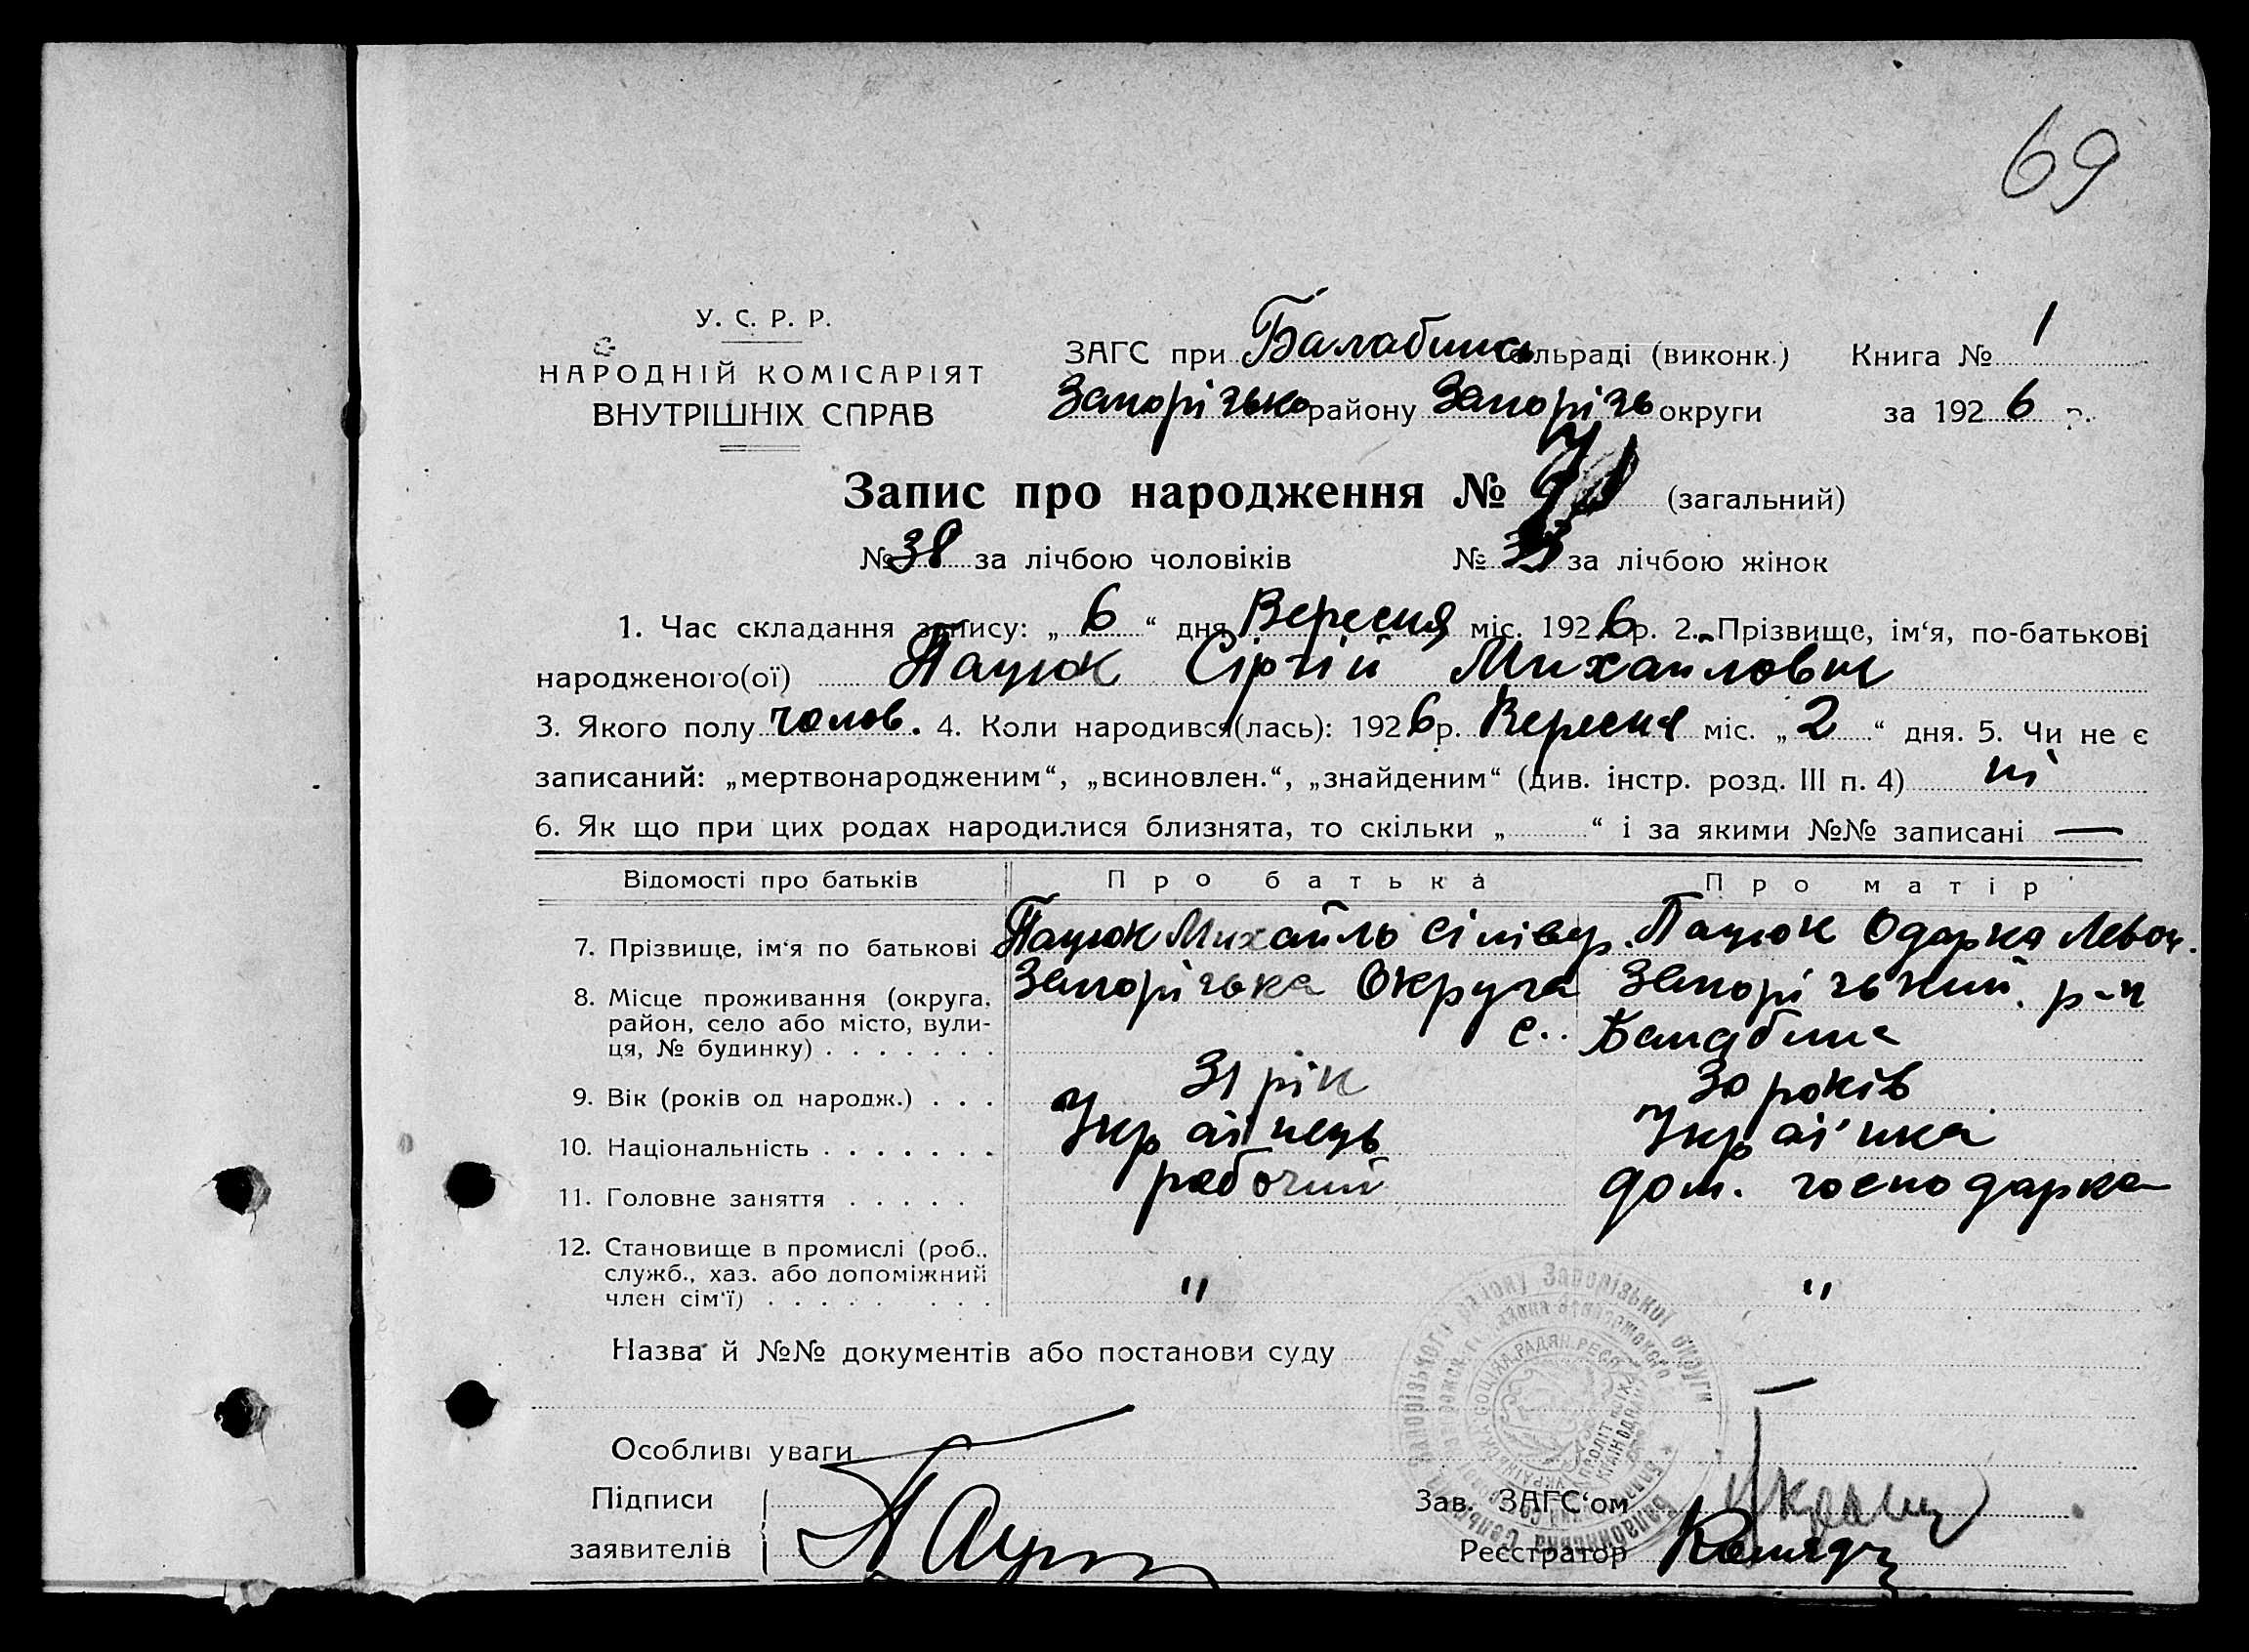 69
У. С. Р. Р.
НАРОДНІЙ КОМІСАРІЯТ
ВНУТРІШНІХ СПРАВ
ЗАГС при Балабинс сельраді (виконк.) Книга № 1
Запорізько району Запорізь округи за 1926 р.
Запис про народження № (загальний)
№ 38 за лічбою чоловіків № за лічбою жінок
1. Час складання запису: „ 6 “ дня Вересня міс. 1926 р. 2. Прізвище, ім‘я, по-батькові
народженого(ої) Пацюк Сіргій Михайлович
3. Якого полу чолов. 4. Коли народився(лась): 1926 р. Вересня міс. „ 2 “ дня. 5. Чи не є
записаний: „мертвонародженим“, „всиновлен.“, „знайденим“ (див. інстр. розд. III п. 4) ні
6. Як що при цих родах народилися близнята, то скільки „ “ і за якими №№ записані —
Відомості про батьків Про батька Про матір
7. Прізвище, ім‘я по батькові Пацюк Михайль Пацюк Одарка
8. Місце проживання (округа, Запорізька Округа Запорізький р-н
район, село або місто, вули- с. Балабине
ця, № будинку) . . . . . . .
9. Вік (років од народж.) . . . 31 рік 30 років
10. Національність . . . . . . . Українець Українка
11. Головне заняття . . . . . рабочий дом. господарка
12. Становище в промислі (роб.,
служб., хаз. або допоміжний " "
член сім‘ї) . . . . . . . .
Назва й №№ документів або постанови суду
Особливі уваги
Підписи Зав. ЗАГС‘ом
заявителів Пацюк Реєстратор